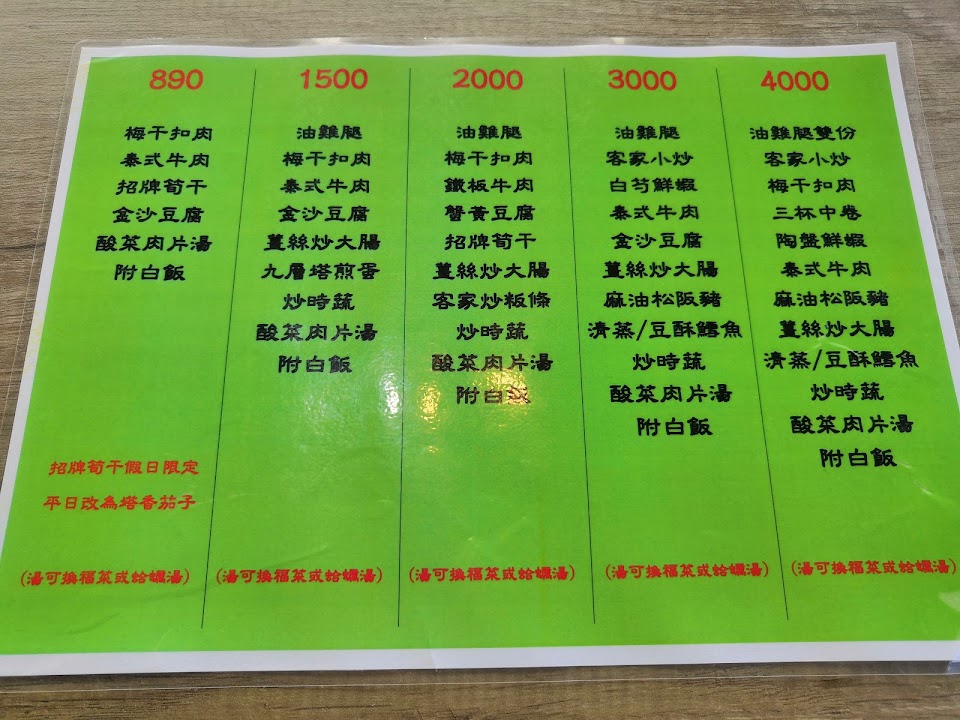 890
梅干扣肉
泰式牛肉
招牌筍干
金沙豆腐
酸菜肉片湯
附白飯
招牌筍干假日限定
平日改為塔香茄子
(湯可換福菜或蛤蠣湯)
1500
油雞腿
梅干扣肉
泰式牛肉
金沙豆腐
薑絲炒大腸
九層塔煎蛋
炒時蔬
酸菜肉片湯
附白飯
(湯可換福菜或蛤蠣湯)
2000
油雞腿
梅干扣肉
鐵板牛肉
蟹黃豆腐
招牌筍干
薑絲炒大腸
客家炒粄條
炒時蔬
酸菜肉片湯
附白飯
(湯可換福菜或蛤蠣湯)
3000
油雞腿
客家小炒
白芍鮮蝦
泰式牛肉
金沙豆腐
薑絲炒大腸
麻油松阪豬
清蒸/豆酥鱈魚
炒時蔬
酸菜肉片湯
附白飯
(湯可換福菜或蛤蠣湯)
4000
油雞腿雙份
客家小炒
梅干扣肉
三杯中卷
陶盤鮮蝦
泰式牛肉
麻油松阪豬
薑絲炒大腸
清蒸/豆酥鱈魚
炒時蔬
酸菜肉片湯
附白飯
(湯可換福菜或蛤蠣湯)